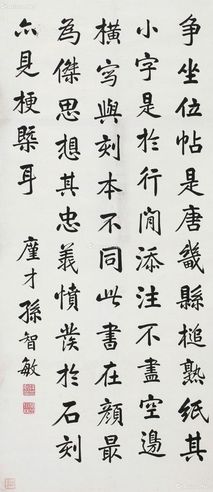 争坐位帖是唐畿縣槌熟紙其
小字是於行間添注不盡空邊
橫写與刻本不同此書在顏最
為傑思想其忠義憤發於石刻
亦見梗槩耳
廑才孫智敏